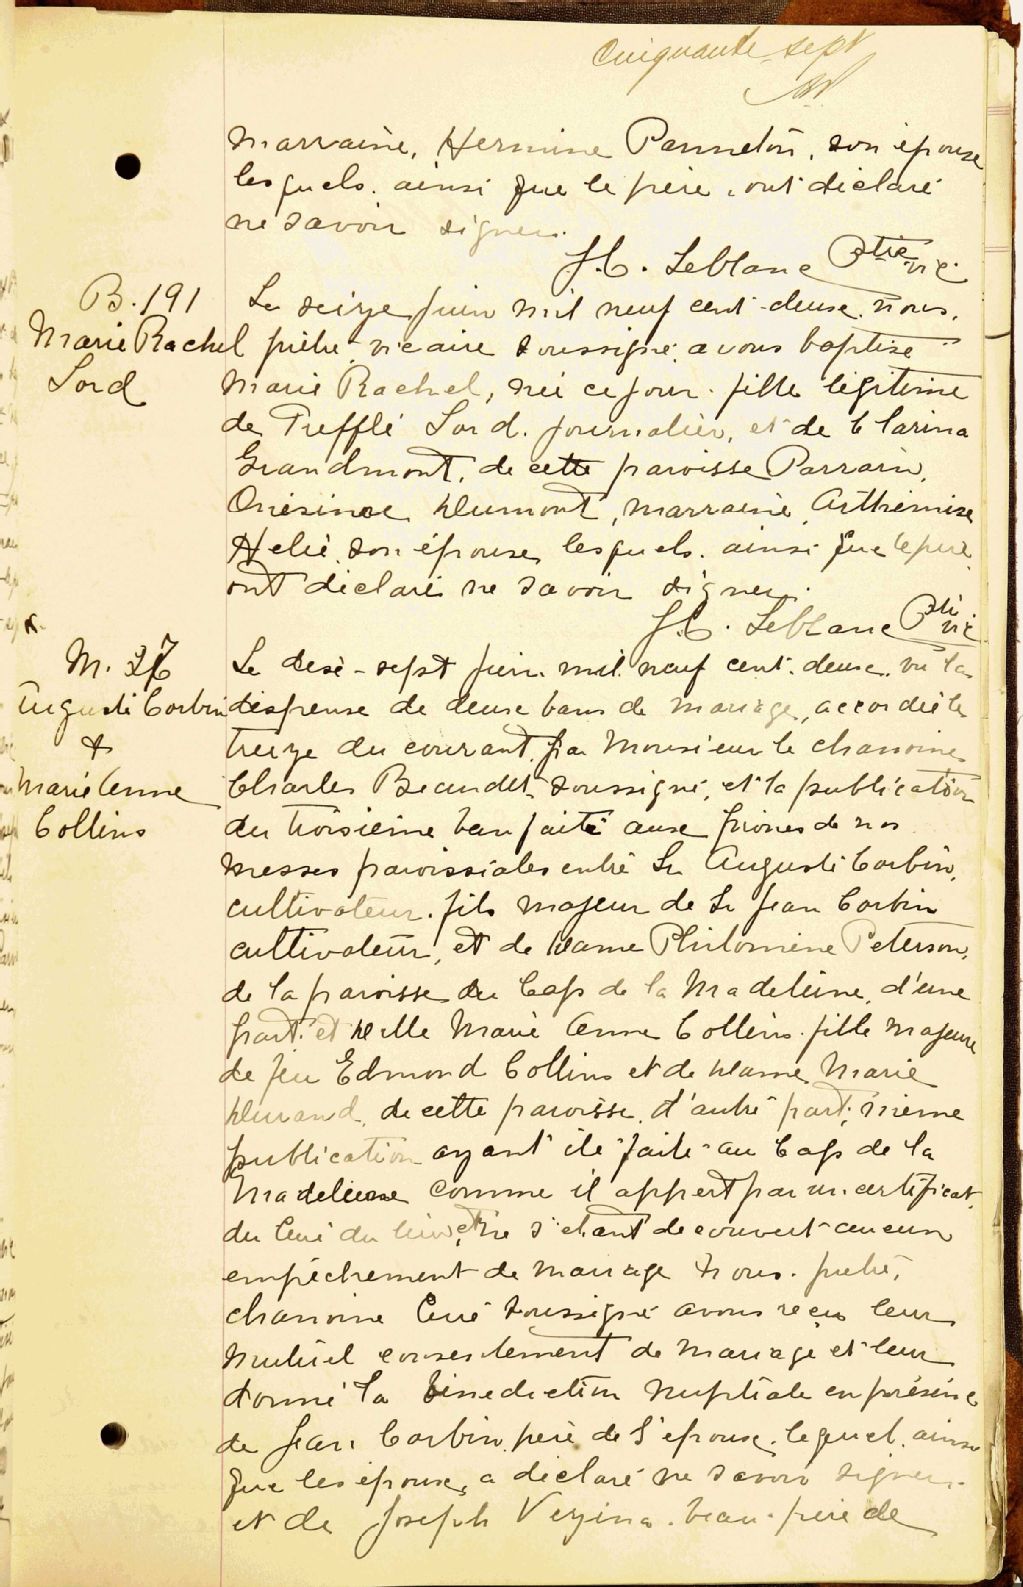 Cinquante-sept
marraine, Hermine Panneton, son épouse
lesquels, ainsi que le père, ont déclaré
ne savoir signer.
J.C. Leblanc Ptre vic.
B. 191
Marie Rachel
Lord
Le seize juin mil neuf cent deux, nous,
prêtre, vicaire soussigné, avons baptisé
Marie Rachel, née ce jour, fille légitime
de Trefflé Lord, journalier, et de Clarina
Grandmont, de cette paroisse Parrain,
Onésime Dumont, marraine, Arthémise
Helie, son épouse, lesquels, ainsi que le père
ont déclaré ne savoir signer.
J.C. Leblanc Ptre vic
M. 27
Auguste Corbin
&
Marie Anne
Collins
Le dix-sept juin mil neuf cent deux, vu la
dispense de deux bans de mariage, accordée le
treize du courant, par Monsieur le chanoine
Charles Beaudet soussigné, et la publication
du troisième ban faite aux prônes de nos
messes paroissiales entre Sr Auguste Corbin,
cultivateur, fils majeur de Sr Jean Corbin
cultivateur, et de Dame Philomène Peterson,
de la paroisse du Cap de la Madeleine, d'une
part, et Delle Marie Anne Collins, fille majeure
de feu Edmond Collins et de Dame Marie
Durand, de cette paroisse, d'autre part, même
publication ayant été faite au Cap de la
Madeleine comme il appert par un certificat
du Curé du lieu, et ne s'étant découvert aucun
empêchement de mariage Nous, prêtre,
chanoine Curé soussigné avons reçu leur
mutuel consentement de mariage et leur
donné la bénédiction nuptiale en présence
de Jean Corbin, père de l'époux, lequel, ainsi
que les époux, a déclaré ne savoir signer,
et de Joseph Vezina, beau-père de